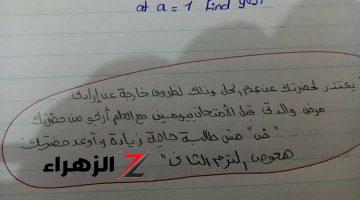 at a = 1 find y(s)
بعتذر لحضرتك عن عدم الحل وذلك لظروف خارجة عن إرادتى
مرض والدتى قبل الأمتحان بيومين مع العلم أرجو من حضرتك
"نص" مش طالبة حاجة زيادة وأوعد حضرتك
هعوض الترم الثانى"
الزهراء